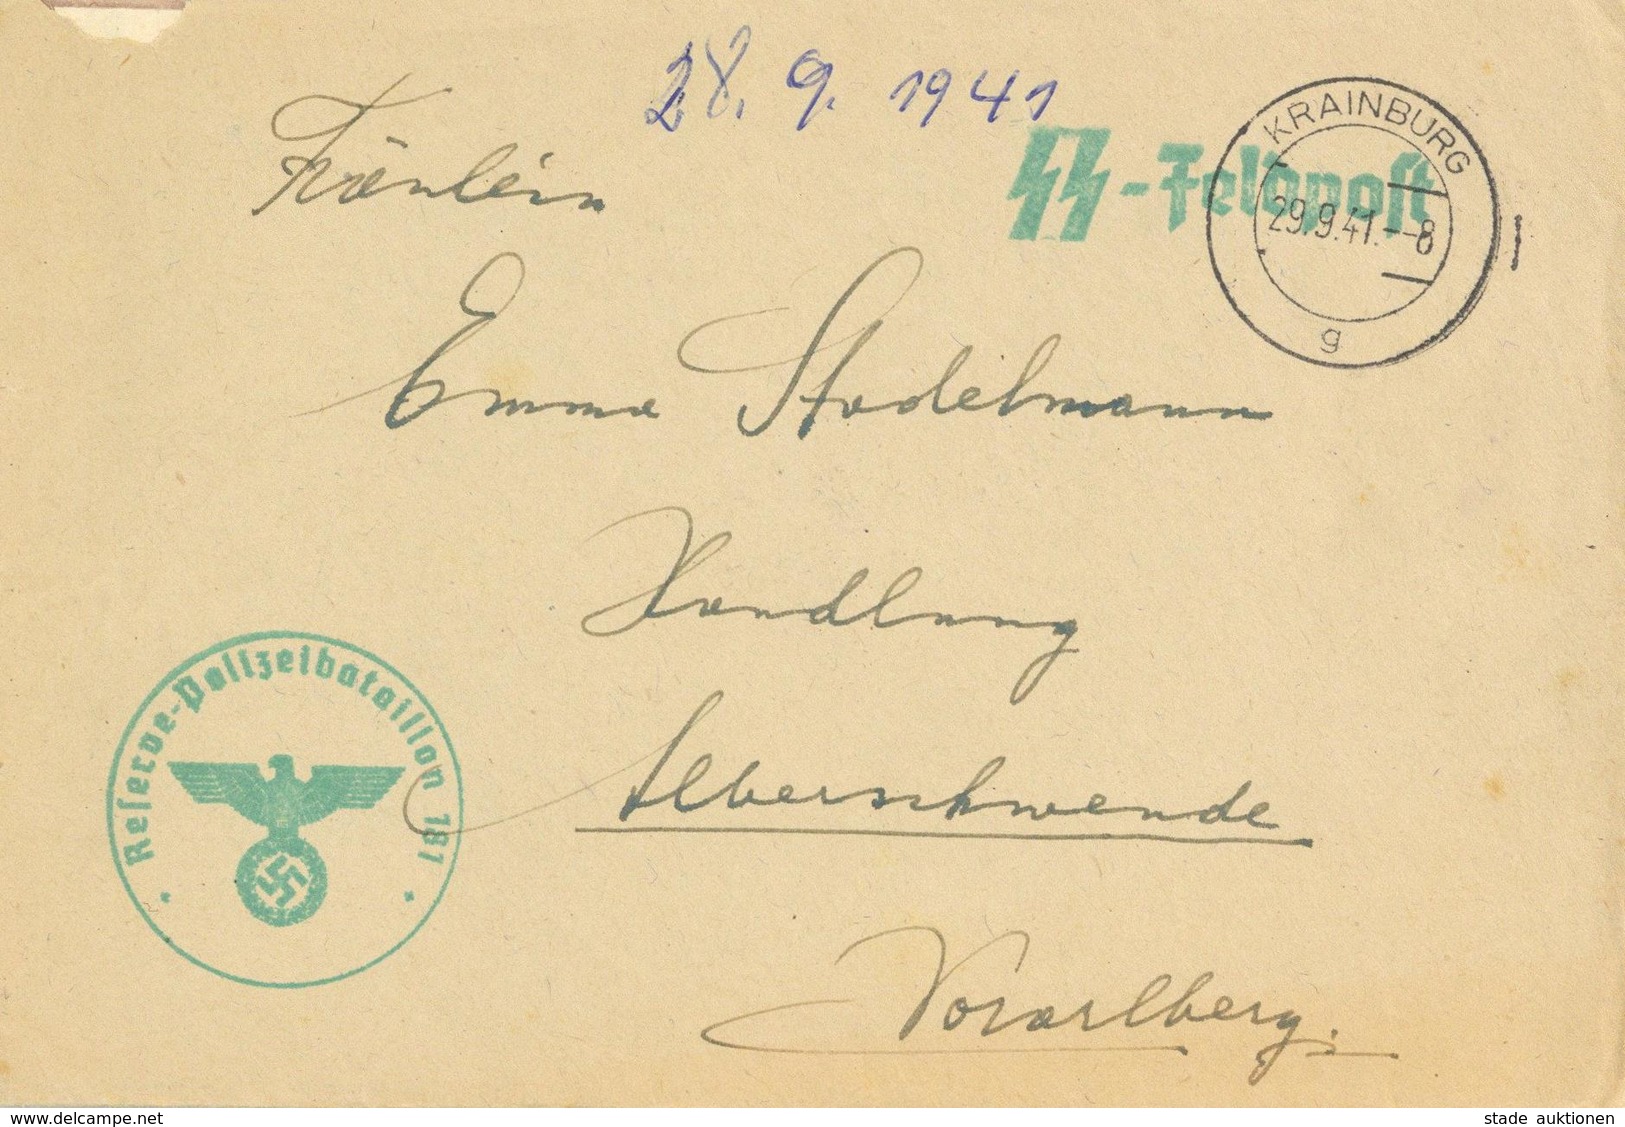 28. 9. 1941
Fräulein
SS-Feldpost
KRAINBURG
29.9.41.--8
g
Emma Stadelmann
Handlung
Reserve-Polizeibataillon 181
Alberschwende
Vorarlberg.
www.delcampe.net
stade auktionen